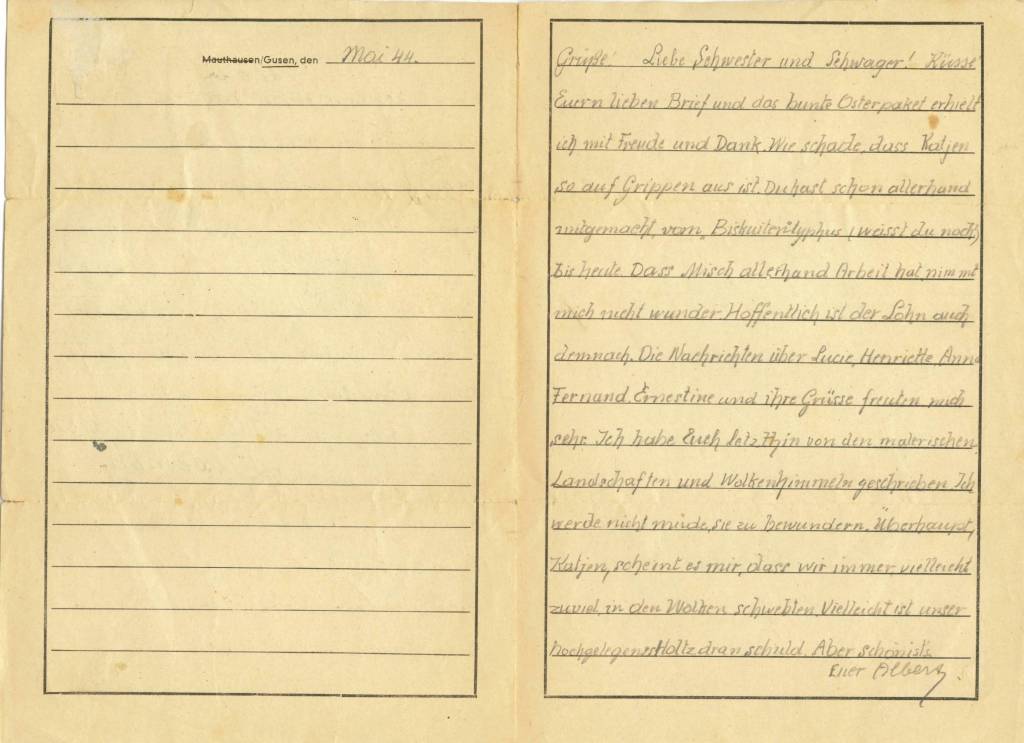 Mauthausen/Gusen, den Mai 44.
Grüße! Liebe Schwester und Schwager! Küsse
Euern lieben Brief und das bunte Osterpaket erhielt
ich mit Freude und Dank. Wie schade, dass Katjen
so auf Grippen aus ist. Du hast schon allerhand
mitgemacht, vom „Biskuiten"-typhus (weisst du noch)
bis heute. Dass Misch allerhand Arbeit hat, nimmt
mich nicht wunder. Hoffentlich ist der Lohn auch
demnach. Die Nachrichten über Lucie, Henriette, Anna
Fernand, Ernestine und ihre Grüsse freuten mich
sehr. Ich habe Euch letzthin von den malerischen
Landschaften und Wolkenhimmeln geschrieben. Ich
werde nicht müde, sie zu bewundern. Überhaupt,
Katjen, scheint es mir, dass wir immer, vielleicht
zuviel, in den Wolken schwebten. Vielleicht ist unser
hochgelegenes Holtz dran schuld. Aber schön ist's
Euer Albert!